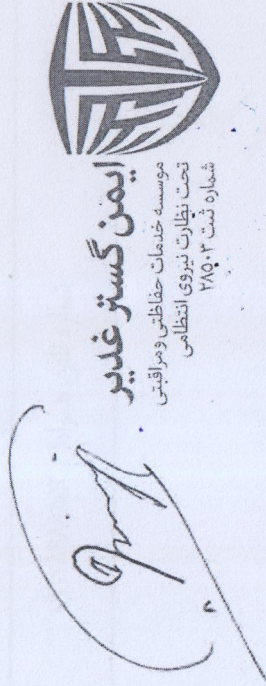 ایمن گستر غدیر
موسسه خدمات حفاظتی و مراقبتی
تحت نظارت نیروی انتظامی
شماره ثبت ۲۸۵۰۳